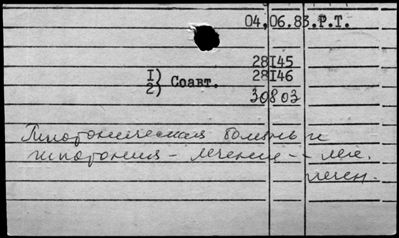 04.06.83.Р.Т.
28I45
I) Соавт. 28I46
2) 30803
Гипотоническая болезнь и
гипотония - лечение - ле.
лечен.